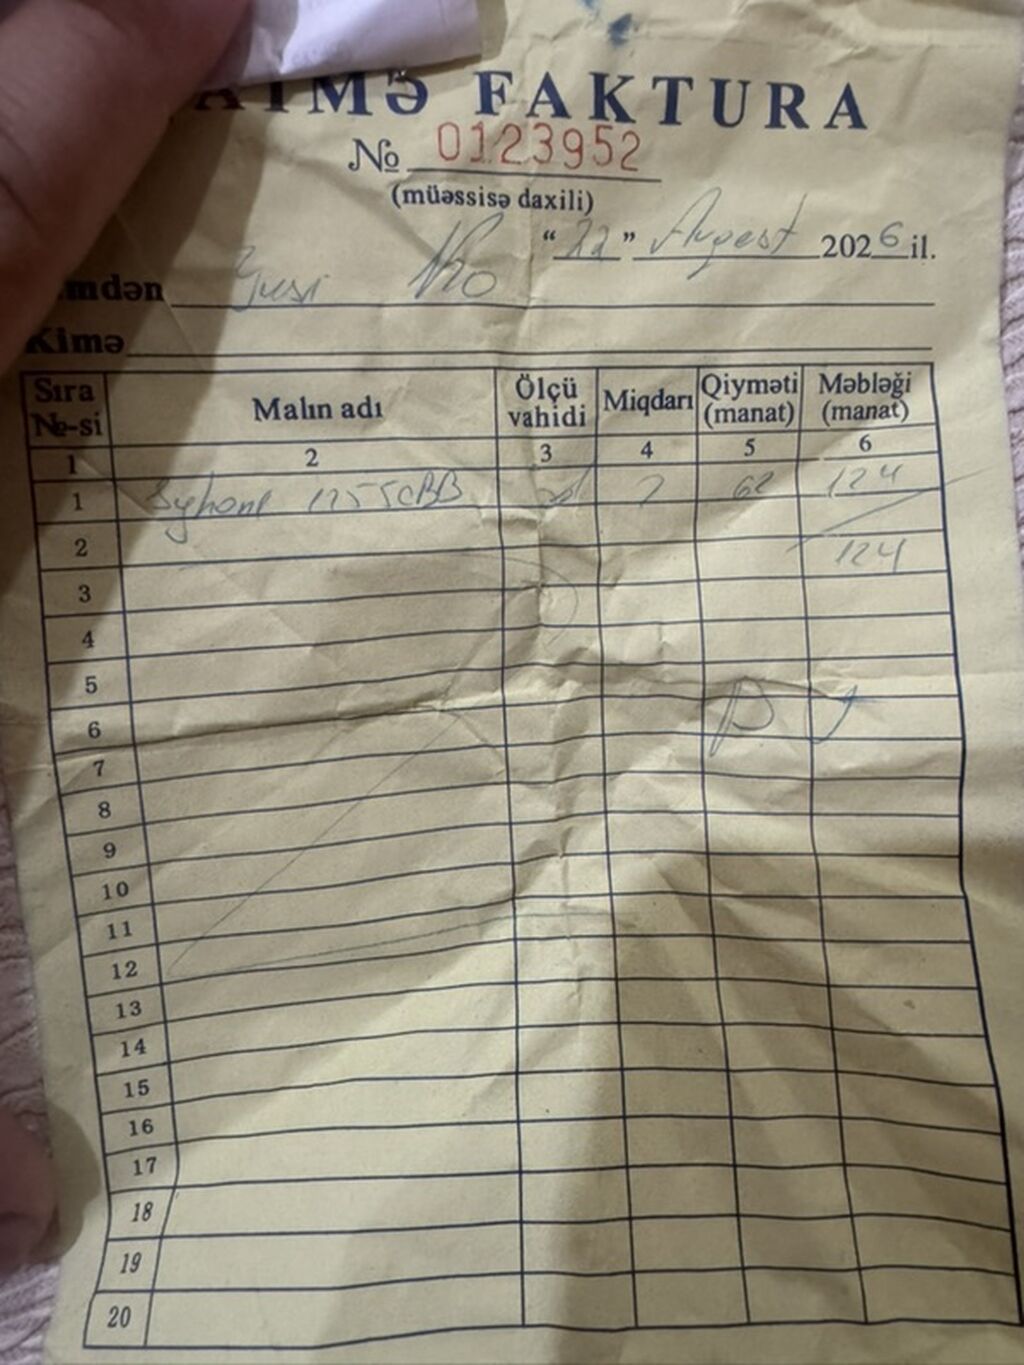 AİMƏ FAKTURA
№ 0123952
(müəssisə daxili)
"22" Avgust 2026 il.
mdən
Kimə
Sıra №-si Malın adı Ölçü vahidi Miqdarı Qiyməti (manat) Məbləği (manat)
1 2 3 4 5 6
1 2 62 124
2 124
3
4
5
6
7
8
9
10
11
12
13
14
15
16
17
18
19
20